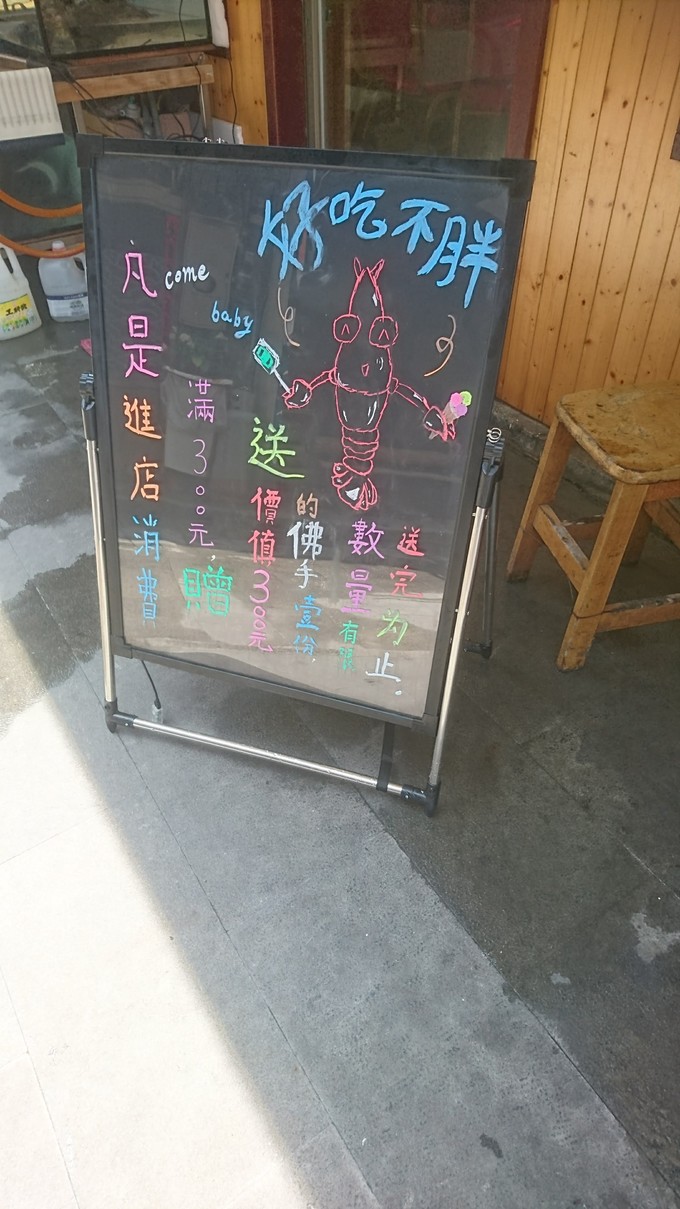 好吃不胖
come
baby
凡是進店消費
滿300元,贈
送價值300元
的佛手壹份,
數量有限
送完为止。